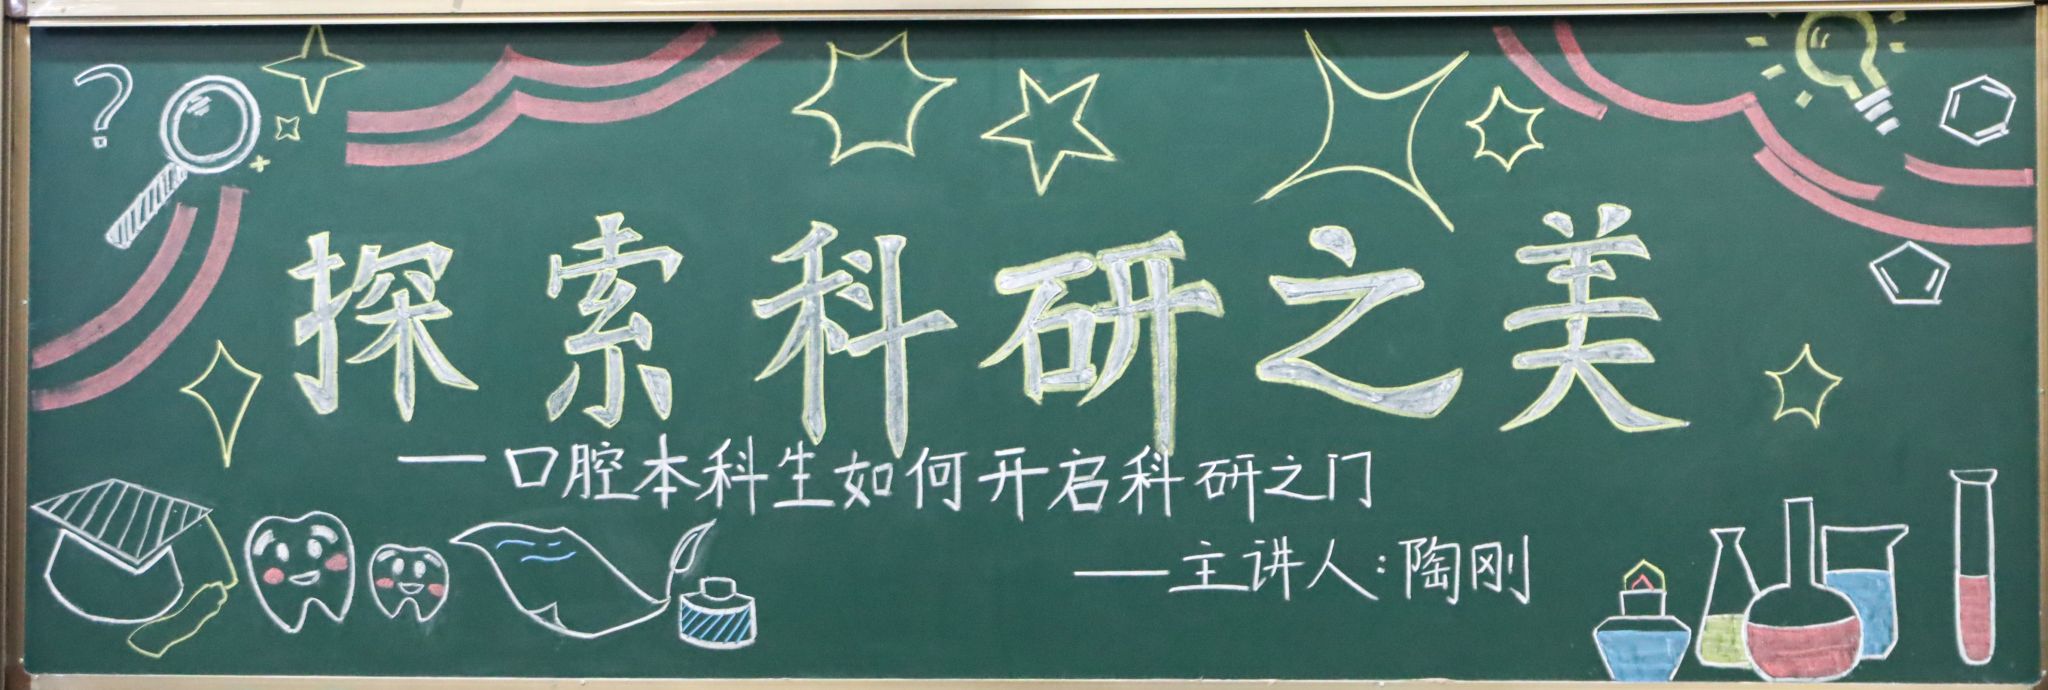 探索科研之美
—口腔本科生如何开启科研之门
—主讲人:陶刚